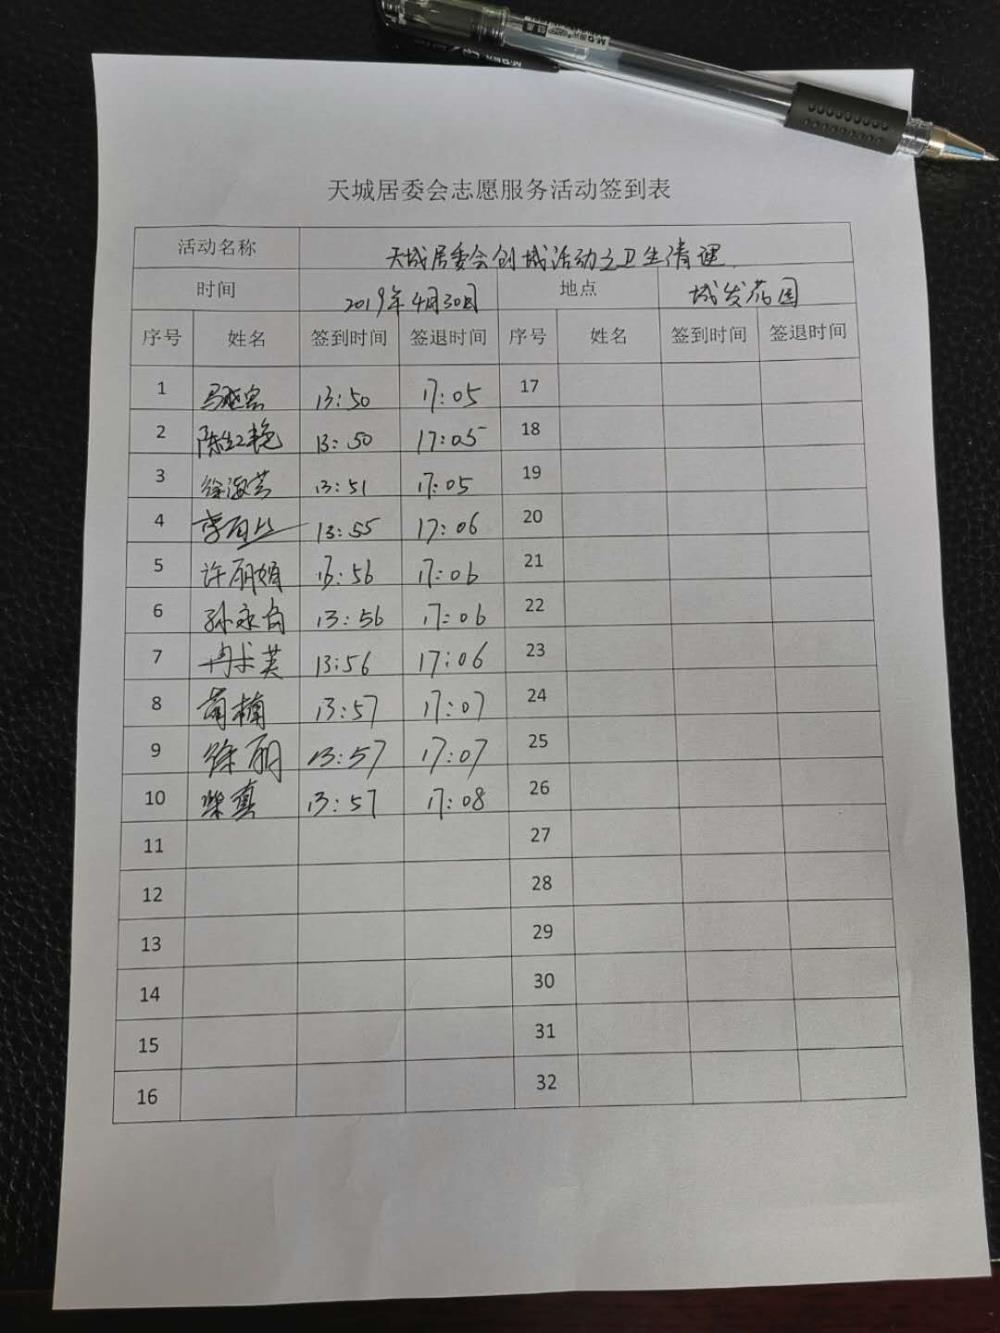 天城居委会志愿服务活动签到表
活动名称 天城居委会创城活动之卫生清理
时间 2019年4月30日 地点 城发花园
序号 姓名 签到时间 签退时间 序号 姓名 签到时间 签退时间
1 13:50 17:05 17
2 陈红艳 13:50 17:05 18
3 徐海芳 13:51 17:05 19
4 13:55 17:06 20
5 许丽娟 13:56 17:06 21
6 孙永向 13:56 17:06 22
7 13:56 17:06 23
8 苟楠 13:57 17:07 24
9 徐丽 13:57 17:07 25
10 柴真 13:57 17:08 26
11 27
12 28
13 29
14 30
15 31
16 32